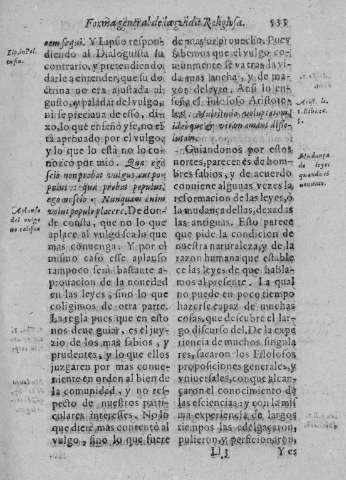 Forma general de la grãdia Religiosa. 535
nem sequi. Y Lipsio respondiendo
al Dialoguista su
contrario, y pretendiendo
darle a entender, que su doctrina
no era ajustada al
gusto, y paladar del vulgo,
ni se preciaua de esso, dize,
lo que enseñó yse, no està
aprouado por el vulgo,
y lo que lo està no lo conozco
por mio. Quæ ego
scio non probat vulgus, aut populus:
quæ probat populus,
ego nescio. Nunquam enim
volui populo placere. De donde
consta, que no lo que
aplace al vulgo sea lo que
mas conuenga. Y por el
mismo caso esse aplauso
tampoco serà bastante aprouacion
de la nouedad
en las leyes, sino lo que
coligimos de otra parte.
La regla pues que en esto
nos deue guiar, es el juyzio
de los mas sabios, y
prudentes, y lo que ellos
juzgaren por mas conueniente
en orden al bien de
la comunidad, y no respecto
de nuestros particulares
interesses. No lo
que diere mas contento al
vulgo, sino lo que fuere
de mayor prouecho. Pues
sabemos que el vulgo comunmente
se va tras la vida
mas ancha, y de manga
y deleyte. Assi lo enseña
el filosofo Aristoteles.
Multitudo voluptatem
Guiandonos por estos
nortes, parecer es de hombres
sabios, y de acuerdo
conuiene algunas vezes la
reformacion de las leyes, ó
la mudança dellas, dexadas
las antiguas. Esto parece
que pide la condicion de
nuestra naturaleza, y de la
razon humana que establece
las leyes de que hablamos
al presente. La qual
no puede en poco tiempo
hazerse capaz de muchas
cosas, que descubre el largo
discurso del. De la experiencia
de muchos singulares,
sacaron los Filosofos
proposiciones generales, y
vniuersales, conque alcançaron
el conocimiento de
las esciencias: y con la misma
experiencia de largos
tiempos las adelgaçaron,
pulieron, y perficionaron.
Ll 3 Y es
Aplauso
del vulgo
no califica
Mudança
de leyes
quando